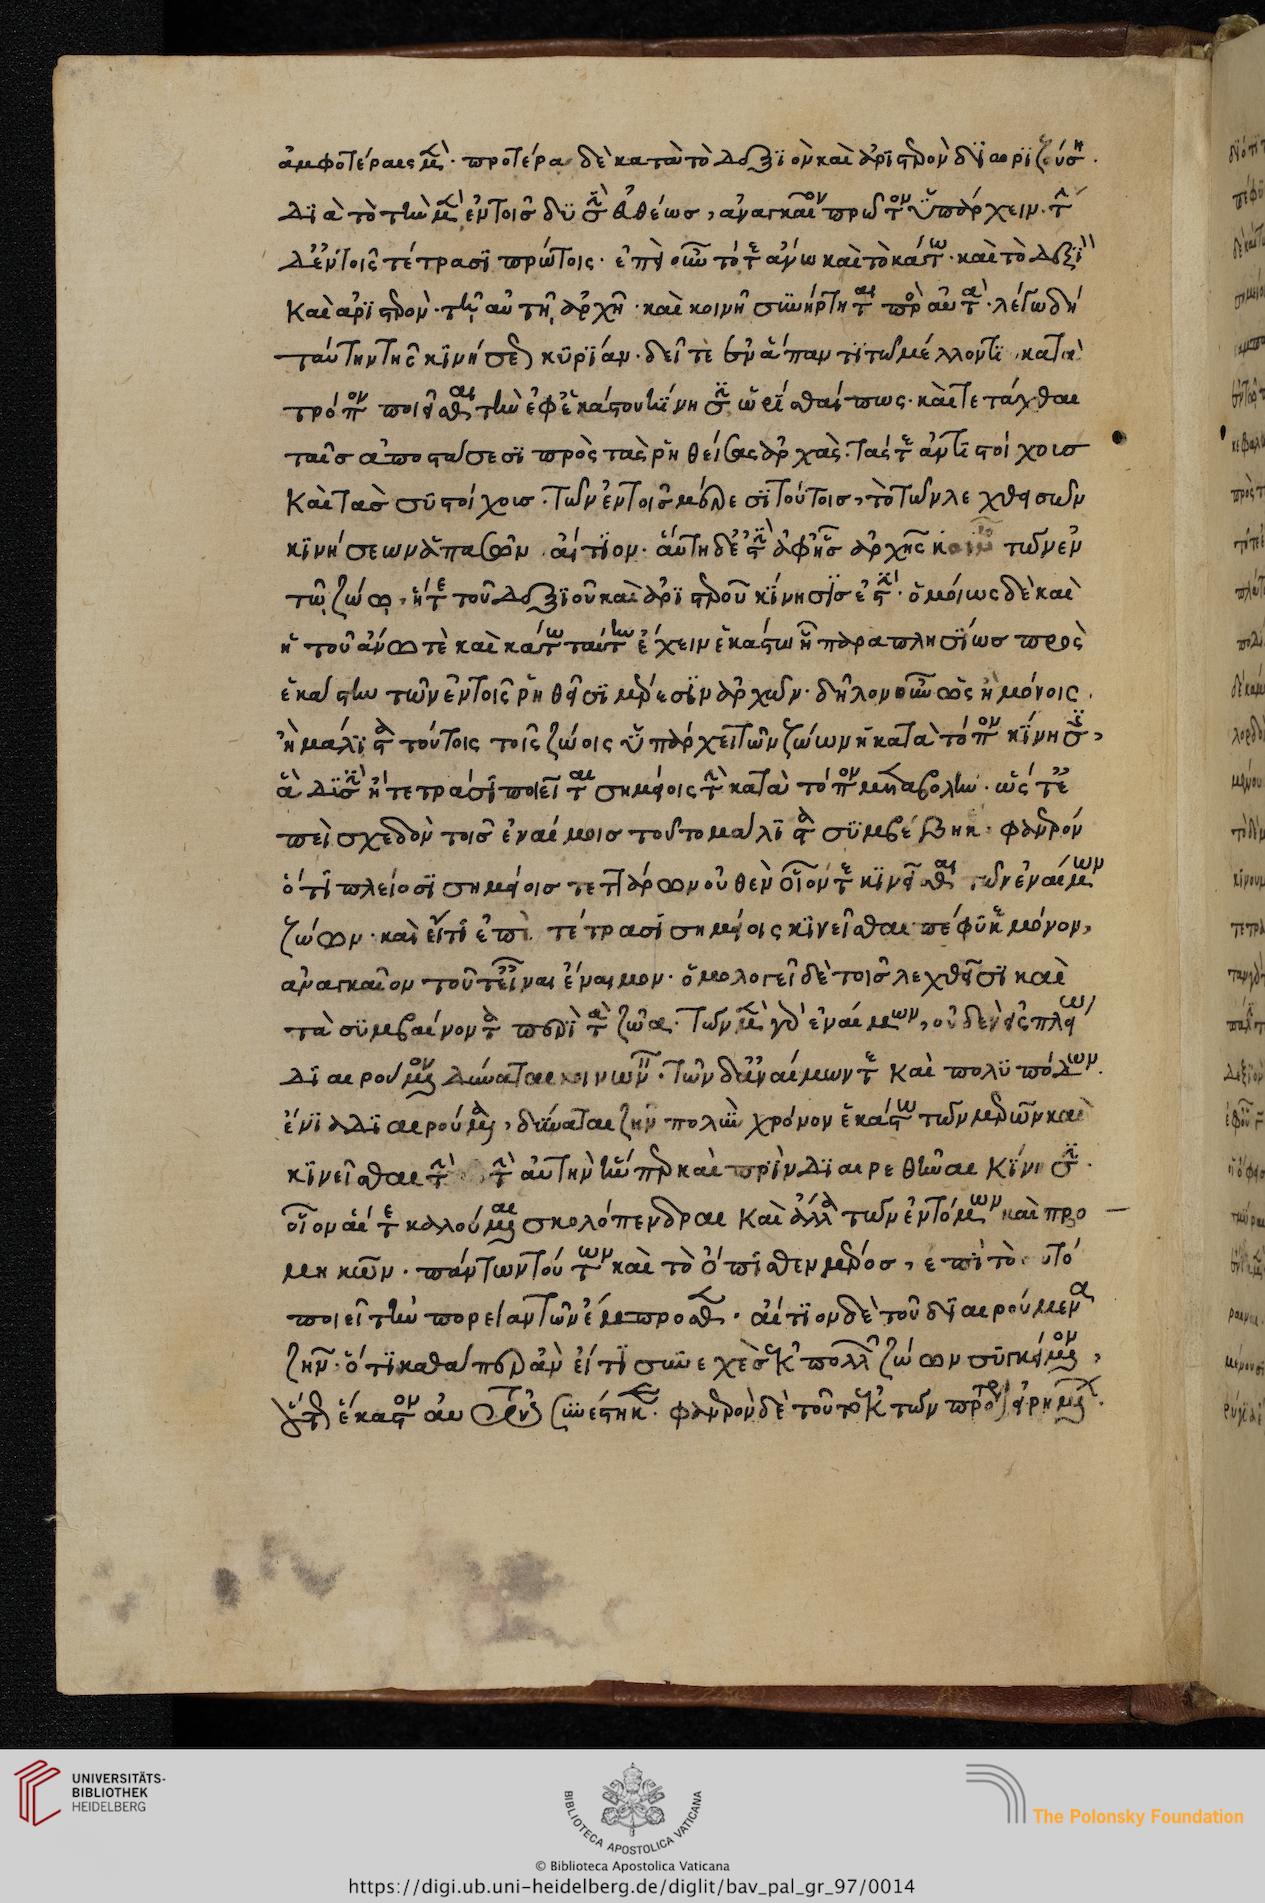 ἀμφοτέραις μὲν· προτέρα δὲ κατὰ τὸ δεξιὸν καὶ ἀριστερὸν διαοριζούση·
διὰ τὸ τὴν μὲν ἐν τοῖς δυσὶν εὐθέως, ἀναγκαῖον πρῶτον ὑπάρχειν· τὴν
δ' ἐν τοῖς τέτρασι πρώτοις· ἐπεὶ οὖν τό τε ἄνω καὶ τὸ κάτω· καὶ τὸ δεξιὸν
καὶ ἀριστερὸν· τῇ αὐτῇ ἀρχῇ· καὶ κοινῇ συνήρτηται πρὸς αὐτὰ· λέγω δὴ
ταύτην τῆς κινήσεως κυρίαν· δεῖ τε ἐν ἅπαντι τῷ μέλλοντι κατὰ
τρόπον ποιεῖσθαι τὴν ἐφ' ἑκάστου κίνησιν ὡρίσθαί πως· καὶ τετάχθαι
ταῖς ἀποστάσεσι πρὸς τὰς ῥηθείσας ἀρχὰς· τάς τε ἀντιστοίχοις
καὶ τὰς συστοίχοις· τῶν ἐν τοῖς μέρεσι τούτοις, τὸ τῶν λεχθεισῶν
κινήσεων ἁπασῶν αἴτιον· αὕτη δέ ἐστιν ἀφ' ἧς ἀρχῆς τῶν ἐν
τῷ ζώῳ, ἥ τε τοῦ δεξιοῦ καὶ ἀριστεροῦ κίνησίς ἐστιν· ὁμοίως δὲ καὶ
ἡ τοῦ ἄνω τὲ καὶ κάτω ταύτῃ ἔχειν ἑκάστῳ ᾗ παραπλησίως πρὸς
ἑκάστην τῶν ἐν τοῖς ῥηθεῖσι μέρεσιν ἀρχῶν· δῆλον οὖν ὡς ἢ μόνοις
ἢ μάλιστα τούτοις τοῖς ζώοις ὑπάρχει τῶν ζώων ἡ κατὰ τόπον κίνησις,
ἃ δυσὶν ἢ τετράσι ποιεῖται σημείοις τὴν κατὰ τόπον μεταβολὴν· ὥστ' ἐ
πεὶ σχεδὸν τοῖς ἐναίμοις τοῦτο μάλιστα συμβέβηκε· φανερόν
ὅτι πλείοσι σημείοις τεττάρων οὐθὲν οἷόν τε κινεῖσθαι τῶν ἐναίμων
ζώων· καὶ εἴ τι ἐπὶ τέτρασι σημείοις κινεῖσθαι πέφυκε μόνον,
ἀναγκαῖον τοῦτ' εἶναι ἔναιμον· ὁμολογεῖ δὲ τοῖς λεχθεῖσι καὶ
τὰ συμβαίνοντα περὶ τὰ ζῶα· τῶν μὲν γὰρ ἐναίμων, οὐδὲν εἰς πλείω
διαιρούμενον δύναται · τῶν δ' ἀναίμων τε καὶ πολυπόδων
ἔνια διαιρούμενα, δύναται ζῆν πολὺν χρόνον ἑκάστῳ τῶν μερῶν καὶ
κινεῖσθαι τὴν αὐτὴν ἥνπερ καὶ πρὶν διαιρεθῆναι κίνησιν·
οἷον αἵ τε καλούμεναι σκολόπενδραι καὶ ἄλλα τῶν ἐντόμων καὶ προ
μηκῶν· πάντων τούτων καὶ τὸ ὄπισθεν μέρος, ἐπὶ τὸ αὐτό
ποιεῖ τὴν πορείαν τῶν ἔμπροσθεν· αἴτιον δὲ τοῦ διαιρούμενα
ζῆν· ὅτι καθάπερ ἂν εἴ τι συνεχὲς ἐκ πολλῶν ζώων συγκείμενον,
οὕτως ἕκαστον αὐτῶν συνέστηκε· φανερὸν δὲ τοῦτο ἐκ τῶν προτέρων εἰρημένων·
UNIVERSITÄTS-
BIBLIOTHEK
HEIDELBERG
BIBLIOTECA APOSTOLICA VATICANA
The Polonsky Foundation
© Biblioteca Apostolica Vaticana
https://digi.ub.uni-heidelberg.de/diglit/bav_pal_gr_97/0014